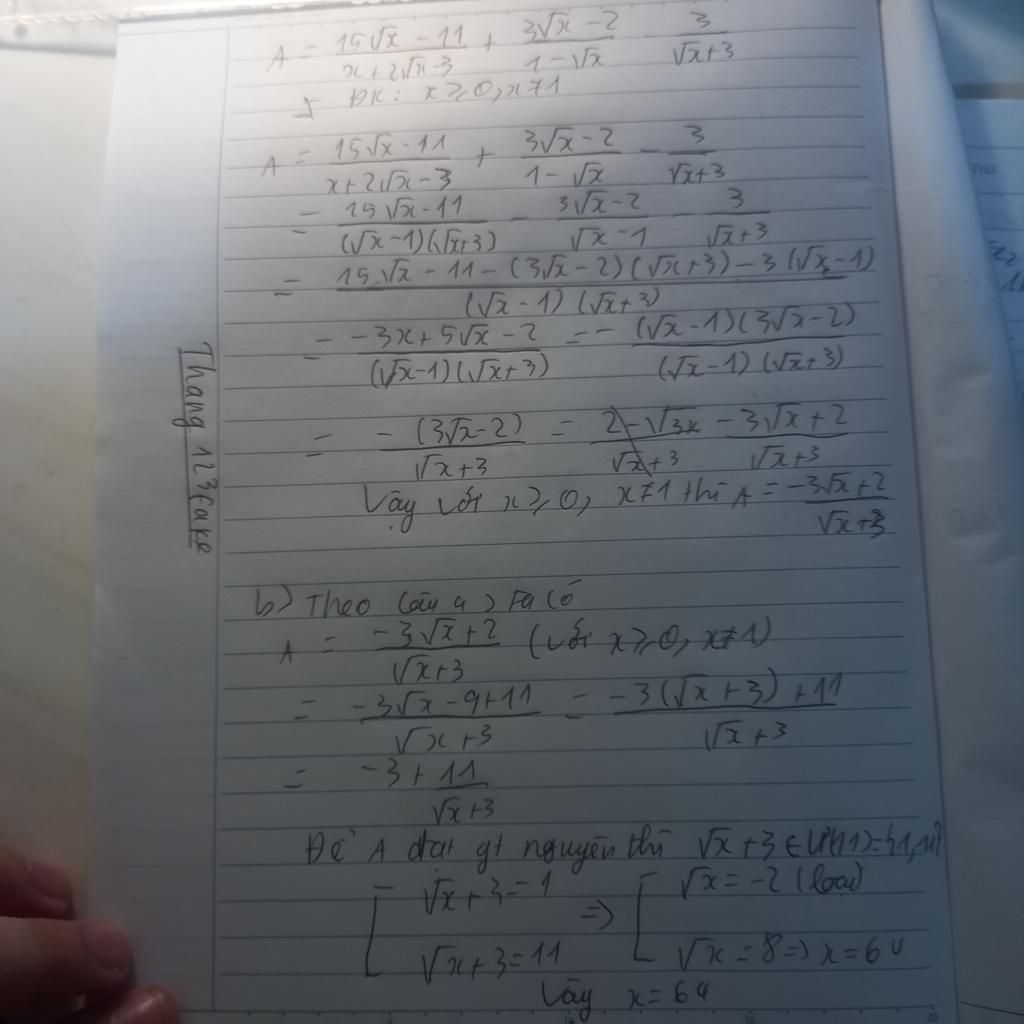 A = \frac{15\sqrt{x} - 11}{x + 2\sqrt{x} - 3} + \frac{3\sqrt{x} - 2}{1 - \sqrt{x}} - \frac{3}{\sqrt{x} + 3}
ĐK: x ≥ 0, x ≠ 1
A = \frac{15\sqrt{x} - 11}{x + 2\sqrt{x} - 3} + \frac{3\sqrt{x} - 2}{1 - \sqrt{x}} - \frac{3}{\sqrt{x} + 3}
= \frac{15\sqrt{x} - 11}{(\sqrt{x} - 1)(\sqrt{x} + 3)} - \frac{3\sqrt{x} - 2}{\sqrt{x} - 1} - \frac{3}{\sqrt{x} + 3}
= \frac{15\sqrt{x} - 11 - (3\sqrt{x} - 2)(\sqrt{x} + 3) - 3(\sqrt{x} - 1)}{(\sqrt{x} - 1)(\sqrt{x} + 3)}
= \frac{-3x + 5\sqrt{x} - 2}{(\sqrt{x} - 1)(\sqrt{x} + 3)} = - \frac{(\sqrt{x} - 1)(3\sqrt{x} - 2)}{(\sqrt{x} - 1)(\sqrt{x} + 3)}
= \frac{-(3\sqrt{x} - 2)}{\sqrt{x} + 3} = \frac{-3\sqrt{x} + 2}{\sqrt{x} + 3}
Vậy với x ≥ 0, x ≠ 1 thì A = \frac{-3\sqrt{x} + 2}{\sqrt{x} + 3}
Thang 123fake
b) Theo câu a) ta có
A = \frac{-3\sqrt{x} + 2}{\sqrt{x} + 3} (với x ≥ 0, x ≠ 1)
= \frac{-3\sqrt{x} - 9 + 11}{\sqrt{x} + 3} = \frac{-3(\sqrt{x} + 3) + 11}{\sqrt{x} + 3}
= -3 + \frac{11}{\sqrt{x} + 3}
Để A đạt gt nguyên thì \sqrt{x} + 3 ∈ Ư(11) = {1, 11}
[ \sqrt{x} + 3 = 1 => [ \sqrt{x} = -2 (loại)
\sqrt{x} + 3 = 11 \sqrt{x} = 8 => x = 64
Vậy x = 64